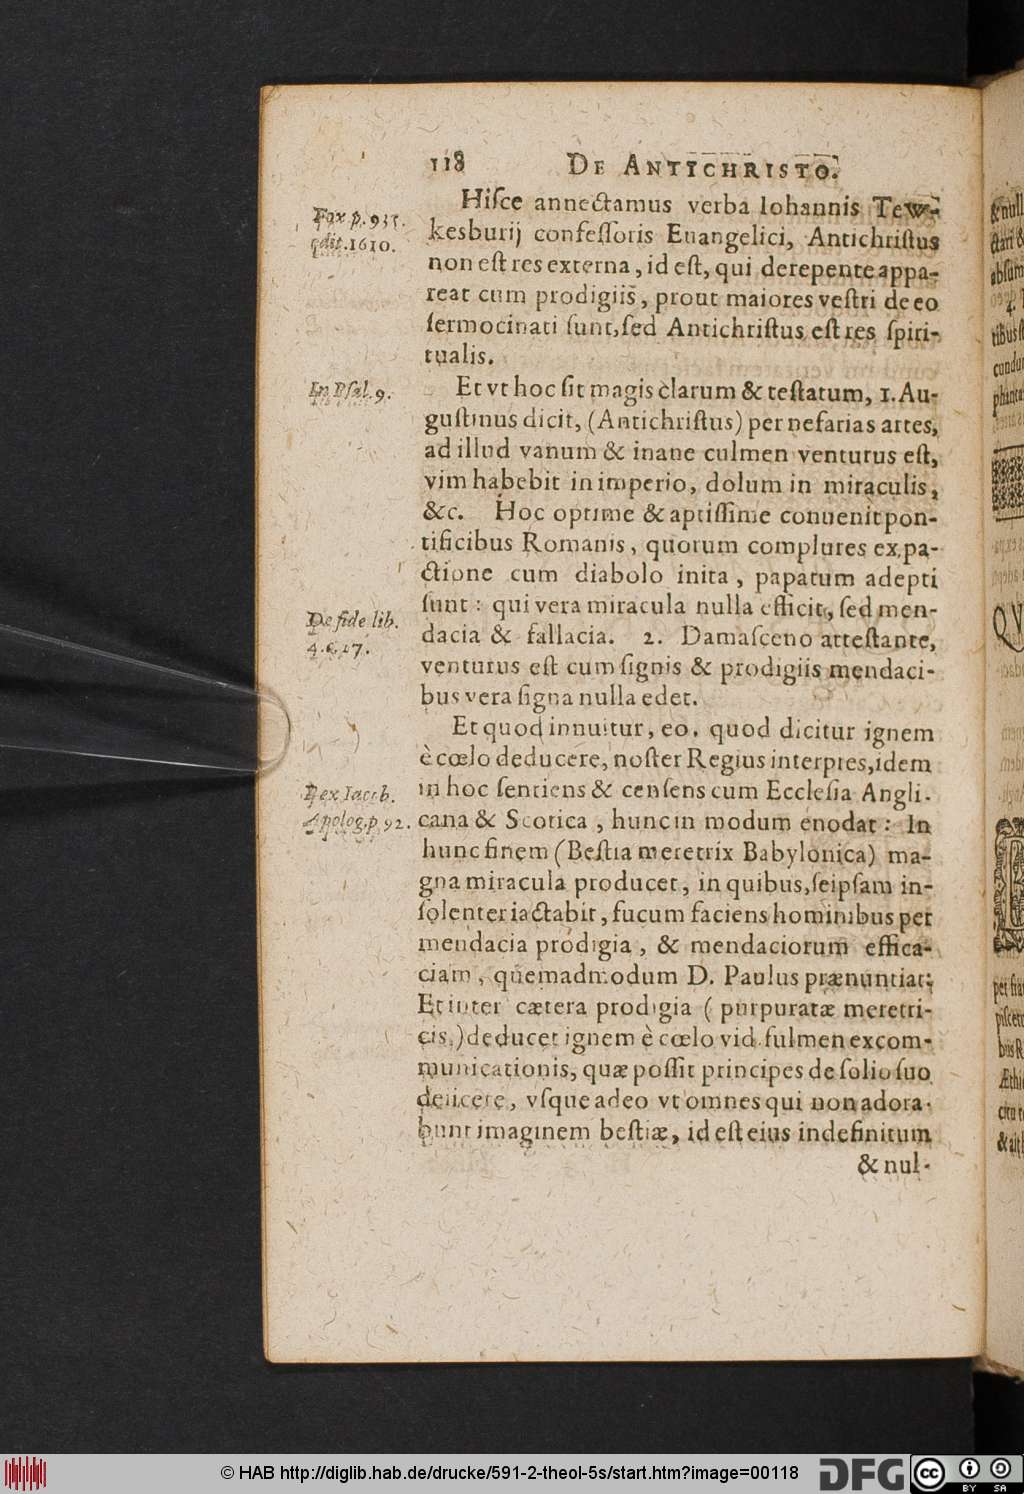 118 DE ANTICHRISTO.
Hiſce annectamus verba Iohannis Tew-
Fox p. 935.
edit. 1610.
kesburij confeſſoris Euangelici, Antichriſtus
non eſt res externa, id eſt, qui derepente appa-
reat cum prodigiis, prout maiores veſtri de eo
ſermocinati ſunt, ſed Antichriſtus eſt res ſpiri-
tualis.
In Pſal. 9.
Et vt hoc ſit magis clarum & teſtatum, 1. Au-
guſtinus dicit, (Antichriſtus) per nefarias artes,
ad illud vanum & inane culmen venturus eſt,
vim habebit in imperio, dolum in miraculis,
&c. Hoc optime & aptiſſime conuenit pon-
tificibus Romanis, quorum complures ex pa-
ctione cum diabolo inita, papatum adepti
ſunt: qui vera miracula nulla efficit, ſed men-
De fide lib.
4. c. 27.
dacia & fallacia. 2. Damaſceno atteſtante,
venturus eſt cum ſignis & prodigiis mendaci-
bus vera ſigna nulla edet.
Et quod innuitur, eo, quod dicitur ignem
è cœlo deducere, noſter Regius interpres, idem
Rex Iacob.
Apolog. p. 92.
in hoc ſentiens & cenſens cum Eccleſia Angli-
cana & Scotica, hunc in modum enodat: In
hunc finem (Beſtia meretrix Babylonica) ma-
gna miracula producet, in quibus, ſeipſam in-
ſolenter iactabit, fucum faciens hominibus per
mendacia prodigia, & mendaciorum effica-
ciam, quemadmodum D. Paulus prænuntiat;
Et inter cætera prodigia (purpuratæ meretri-
cis,) deducet ignem è cœlo vid. fulmen excom-
municationis, quæ poſſit principes de ſolio ſuo
deiicere, vſque adeo vt omnes qui non adora-
bunt imaginem beſtiæ, id eſt eius indefinitum
& nul-
© HAB http://diglib.hab.de/drucke/591-2-theol-5s/start.htm?image=00118
DFG
cc BY SA